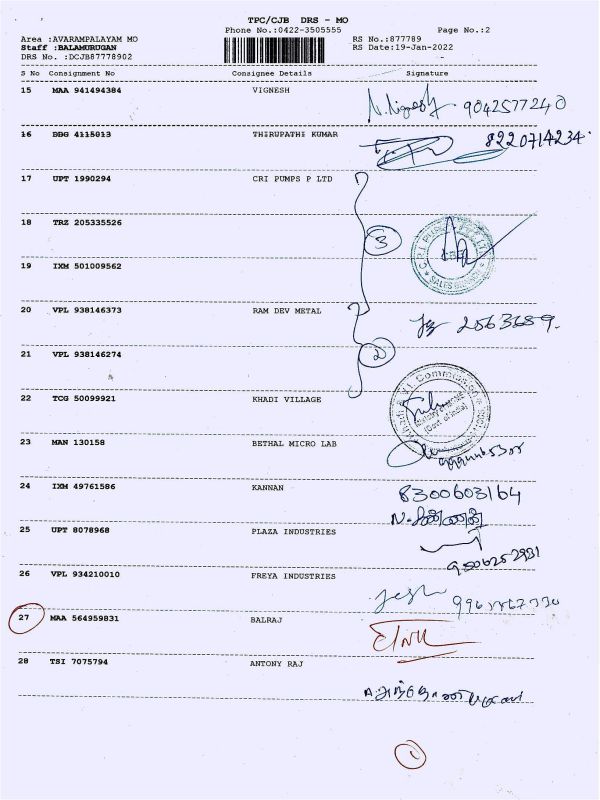 TPC/CJB DRS - MO
Phone No.:0422-3505555 Page No.:2
Area :AVARAMPALAYAM MO RS No.:877789
Staff :BALAMURUGAN RS Date:19-Jan-2022
DRS No. :DCJB87778902
S No Consignment No Consignee Details Signature
15 MAA 941494384 VIGNESH N.Vignesh 9042577240
16 BBG 4115013 THIRUPATHI KUMAR 8220714234
17 UPT 1990294 CRI PUMPS P LTD
18 TRZ 205335526 3
SALES
19 IXM 501009562
20 VPL 938146373 RAM DEV METAL 2563689
21 VPL 938146274 2
22 TCG 50099921 KHADI VILLAGE
(Govt. of India)
23 MAN 130158 BETHAL MICRO LAB
24 IXM 49761586 KANNAN 8300603164
25 UPT 8078968 PLAZA INDUSTRIES
26 VPL 934210010 FREYA INDUSTRIES
27 MAA 564959831 BALRAJ
28 TSI 7075794 ANTONY RAJ
1